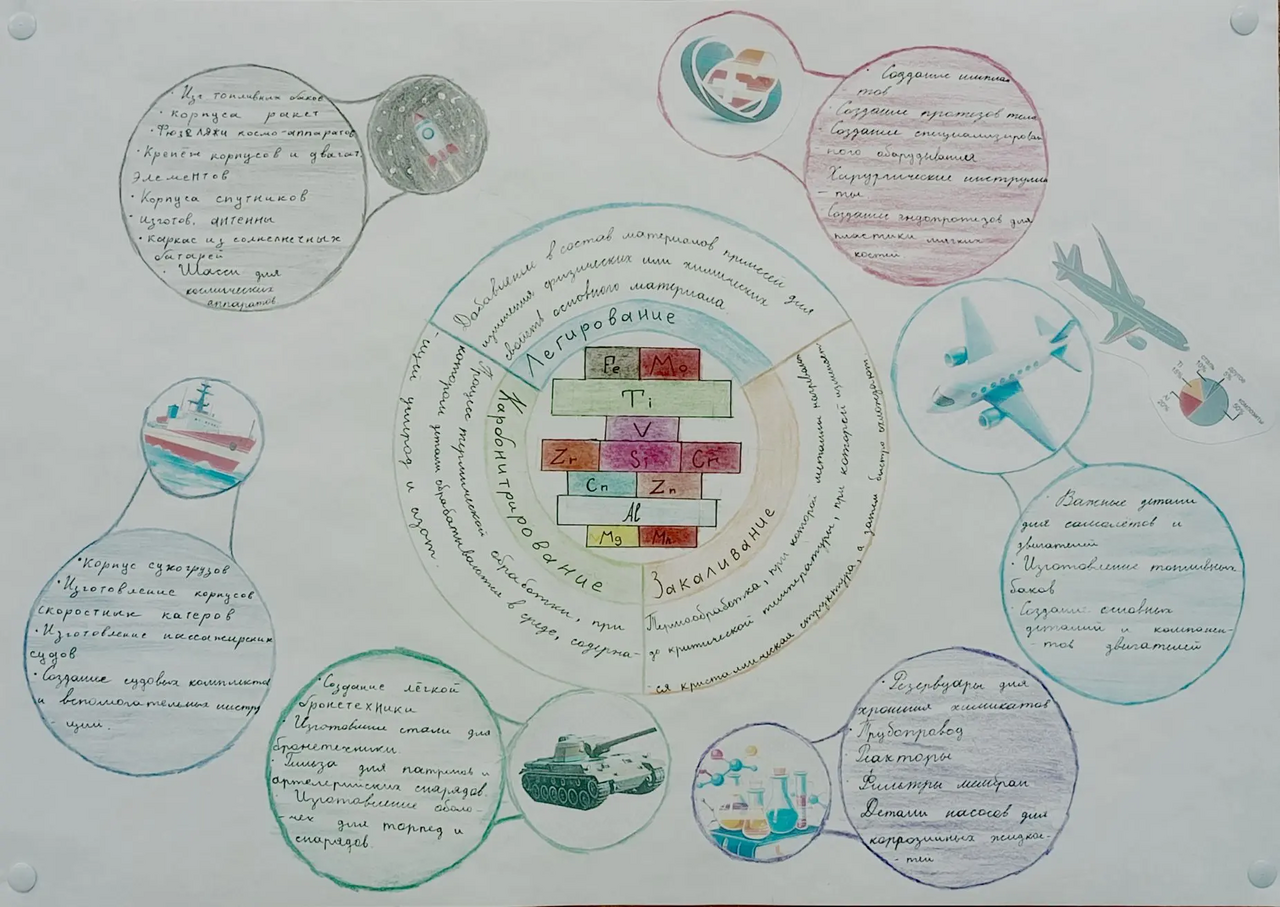 • Из топливных баков
• Корпуса ракет
• Фюзеляжи космо-аппаратов
• Крепёж корпусов и двигат.
элементов
• Корпуса спутников
• изготов. антенны
• каркас из солнечных
батарей
• Шасси для
космических
аппаратов
• Создание имплан
тов
• Создание протезов тела
• Создание специализирован
ного оборудывания
Хирургические инструмен
- ты.
Создание эндопротезов для
пластики мягких
костей
Добавление в состав материалов примесей для
изменения физических или химических
свойств основного материала.
Легирование
Fe Mo
Ti
V
Zr Si Cr
Cn Zn
Al
Mg Mn
Карбонитрирование
Процесс термической обработки, при
котором детали обрабатываются в среде, содержа-
-щей углерод и азот.
Закаливание
Термообработка, при которой металл нагревают
до критической температуры, при которой изменяет-
-ся кристаллическая структура, а затем быстро охлаждают
• Корпус сухогрузов
• Изготовление корпусов
скоростных катеров
• Изготовление пассажирских
судов
• Создание судовых комплект
и вспомогательных инстру
- ции.
• Важные детали
для самолётов и
двигателей
• Изготовление топливных
баков
• Создание основных
деталий и компонен-
- тов двигателей
• Создание лёгкой
бронетехники
• Изготовление стали для
бронетехники
• Гильза для патронов и
артелерийских снарядов.
Изготовление оболо
- чек для торпед и
снарядов
• Резервуары для
хронения химикатов
• Трубопровод
Реакторы
• Фильтры мембран
Детали насосов для
коррозийных жидкос-
- тей